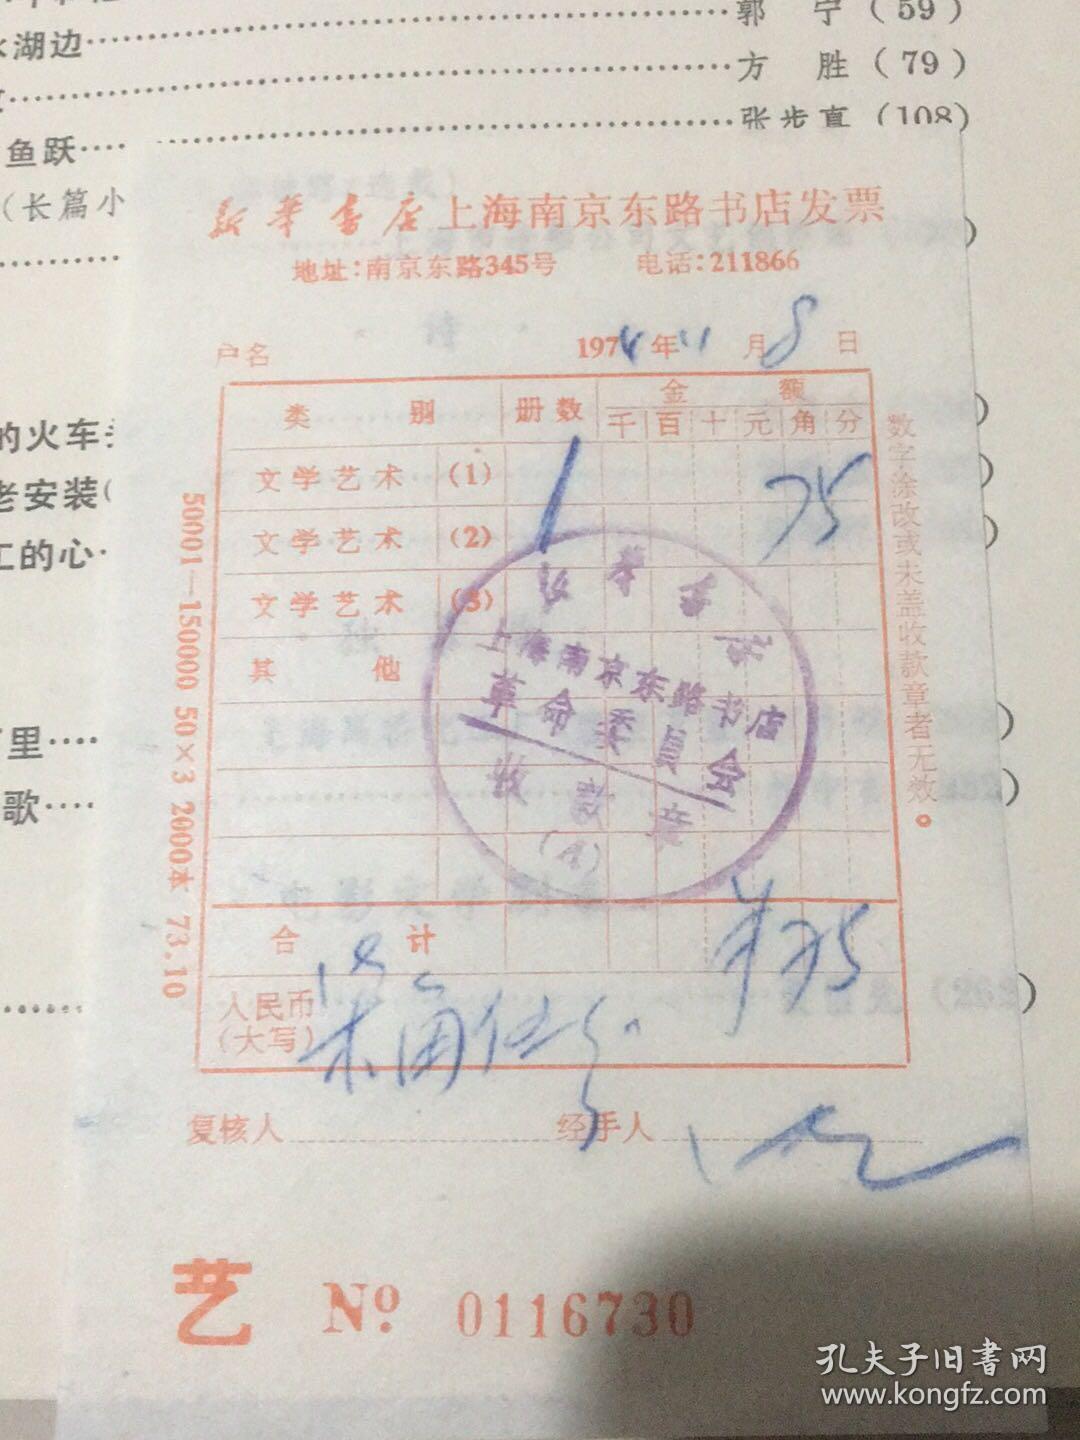 郭 宁 (59)
湖边
方 胜 (79)
鱼跃
张步真 (108)
(长篇小
新华书店上海南京东路书店发票
地址:南京东路345号 电话:211866
户名 1974年11月8日
类别 册数 金额
千 百 十 元 角 分
文学艺术 (1) 1 75
文学艺术 (2)
文学艺术 (3)
其他
合计 ¥0.75
人民币(大写) 柒角伍分
复核人 经手人
数字涂改或未盖收款章者无效。
50001—150000 50×3 2000本 73.10
新华书店
上海南京东路书店
革命委员会
收款章
(A)
的火车
老安装(
工的心
里
歌
艺 No. 0116730
孔夫子旧書网
www.kongfz.com